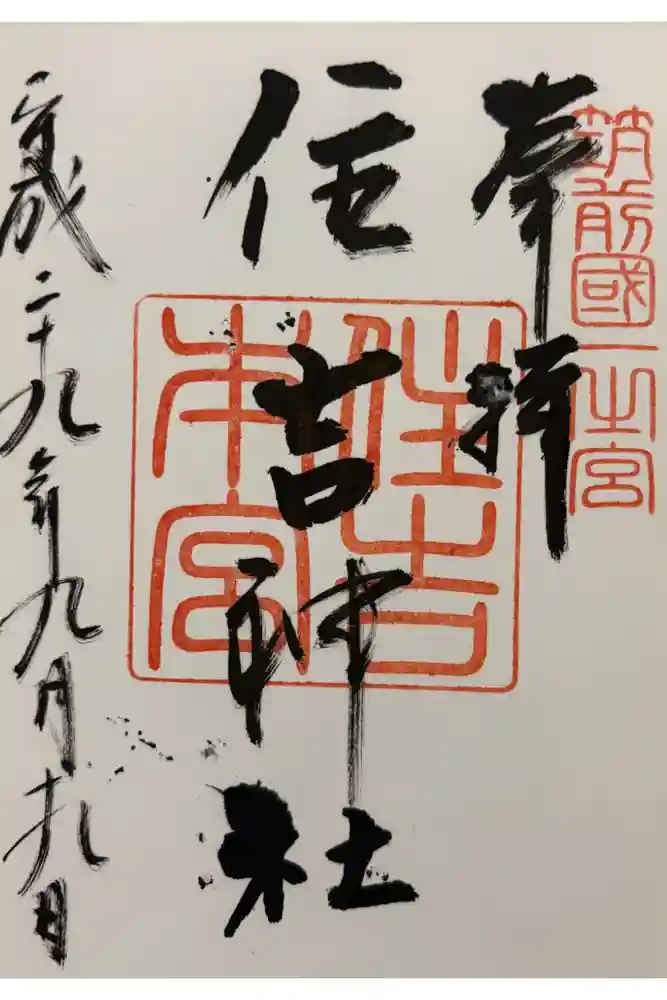 筑前國一之宮
奉拝
住吉神社
住吉
本宮
平成二十九年九月十九日